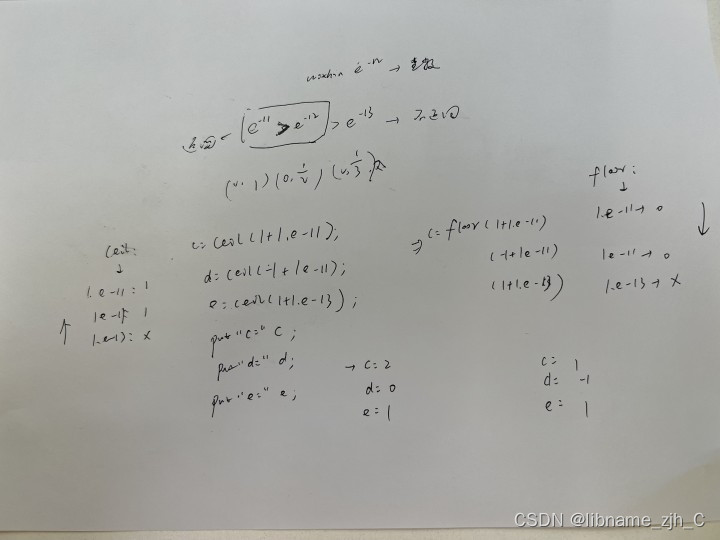 e^-12 → 整数
[e^-11 > e^-12] > e^-13 →
(0, 1) (0, 1/2) (0, 1/3)
floor:
↓
1.e-11 → 0
1e-11 → 0
1.e-13 → x
ceil:
↓
1.e-11: 1
1e-11: 1
1.e-13: x
c=ceil(1+1.e-11);
d=ceil(-1+1e-11);
e=ceil(1+1.e-13);
put "c=" c;
put "d=" d;
put "e=" e;
⇒ c=floor(1+1.e-11)
(-1+1e-11)
(1+1.e-13)
→ c=2
d=0
e=1
c= 1
d= -1
e= 1
CSDN @libname_zjh_C